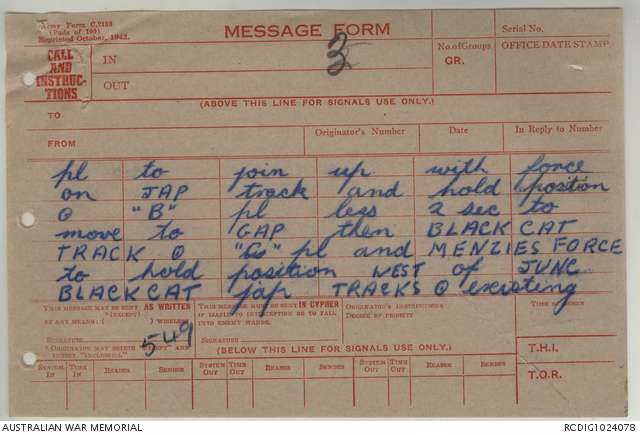 Army Form C.2136
(Pads of 100)
Reprinted October, 1942.
MESSAGE FORM
Serial No.
CALL AND INSTRUC-TIONS
IN
3
No. of Groups
GR.
OFFICE DATE STAMP
OUT
(ABOVE THIS LINE FOR SIGNALS USE ONLY.)
TO
FROM
Originator's Number
Date
In Reply to Number
pl to join up with force
on JAP track and hold position
@ "B" pl less 2 sec to
move to GAP then BLACKCAT
TRACK @ pl and MENZIES FORCE
to hold position WEST of JUNC
BLACKCAT jap TRACKS @ existing
THIS MESSAGE MAY BE SENT AS WRITTEN
(EXCEPT)
BY ANY MEANS ( ) WIRELESS
THIS MESSAGE MUST BE SENT IN CIPHER
IF LIABLE TO INTERCEPTION OR TO FALL
INTO ENEMY HANDS.
ORIGINATOR'S INSTRUCTIONS
DEGREE OF PRIORITY
SIGNATURE
549
SIGNATURE
(BELOW THIS LINE FOR SIGNALS USE ONLY.)
T.H.I.
SYSTEM IN
TIME IN
READER
SENDER
SYSTEM OUT
TIME OUT
READER
SENDER
SYSTEM OUT
TIME OUT
READER
SENDER
T.O.R.
AUSTRALIAN WAR MEMORIAL
RCDIG1024078